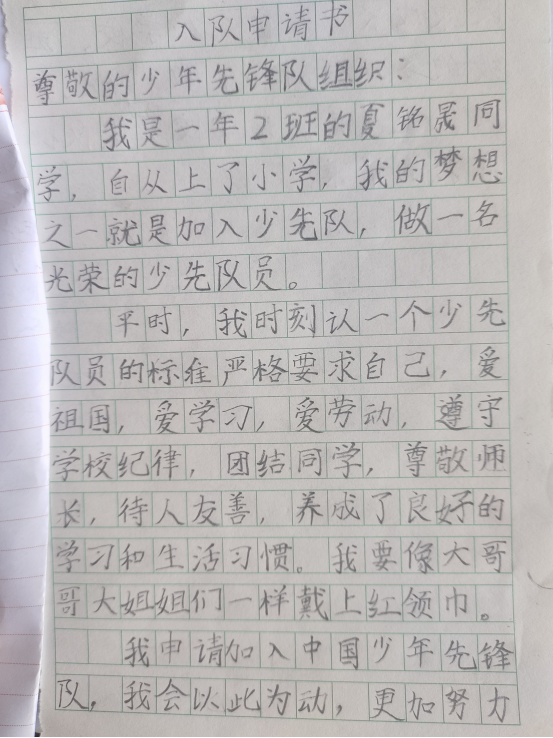 入队申请书
尊敬的少年先锋队组织:
我是一年2班的夏铭晟同
学,自从上了小学,我的梦想
之一就是加入少先队,做一名
光荣的少先队员。
平时,我时刻认一个少先
队员的标准严格要求自己,爱
祖国,爱学习,爱劳动,遵守
学校纪律,团结同学,尊敬师
长,待人友善,养成了良好的
学习和生活习惯。我要像大哥
哥大姐姐们一样戴上红领巾。
我申请加入中国少年先锋
队,我会以此为动,更加努力